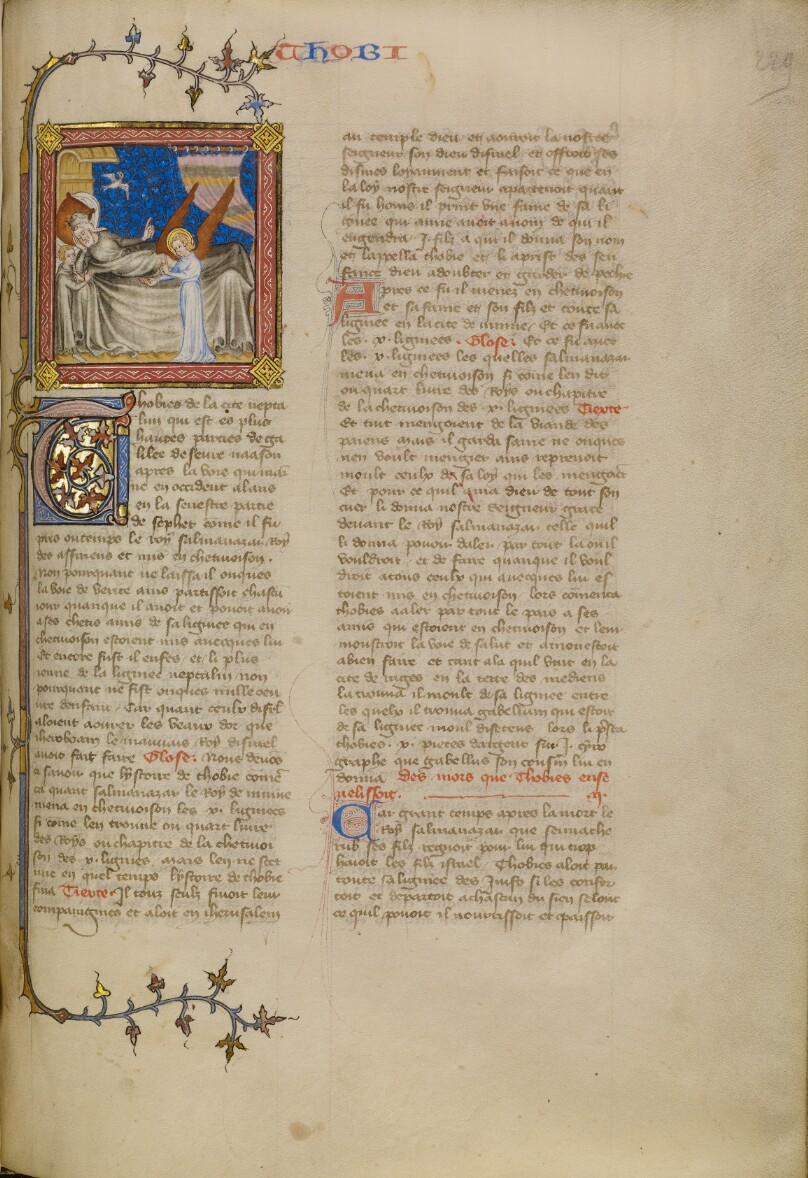 THOBI
229
Thobies de la cite nepta
lim qui est es plus
hautes parties de ga
lilee deseure naason
apres la voie qui mai
ne en occident a laus
en la senestre partie
de sephet come il fu
pris ou temps le roy salmanazar Roy
des assiriens et mis en chetivoison .
Non pourquant ne laissa il onques
la voie de verite ains partissoit chascun
iour quanque il avoit et pouoit avoir
a ses chetis amis de sa lignee qui en
chetivoison estoient mis avecques lui
Et encore fust il enfes et li plus
ienne de la lignee neptalin non
pourquant ne fist onques nulle oeu
vre denfant . Car quant ceulx disrl
aloient aourer les veaux dor que
iheroboam le mauvais Roy disrael
avoit fait faire Glose . Nous devons
savoir que lystoire de thobie comē
ca quant salmanazar le Roy de ninive
mena en chetivoison les .x. lignees
si come len treuve ou quart livre
des Roys ou chapitre de la chetivoi
son des .x. lignies . mais len ne scet
mie en quel temps lystoire de thobie
fina Tiexte . Il touz seulz fuioit leur
compaingnies et aloit en iherusalem
au temple dieu et aouroit la nostre
seigneur son dieu disrael et offroit ses
dismes loyaument et faisoit ce que en
la loy nostre seigneur apartenoit quant
il fu homs il print une fame de sa li
gnee qui anne avoit a nom de qui il
engendra .I. filz a qui il donna son nom
et lappella thobie et li aprist des sen
fance dieu a doubter et garder de pechie
Apres ce fu il menez en chetivoison
et sa fame et son filz et toute sa
lignee en la cite de ninive . Et ce fu avec
les .x. lignees . Glose . Et ce fu avec
les .x. lignees les quelles salmanazar
mena en chetivoison si come len dit
ou quart livre des Roys ou chapitre
de la chetivoison des .x. lignees Tiexte
Et tuit mengoient de la viande des
paiens mais il garda same ne onques
nen voult mengier ains reprenoit
moult ceulx de sa loy qui les mengoiēt
Et pour ce quil ama dieu de tout son
cuer li donna nostre seigneur grace
devant le Roy salmanazar telle quil
li donna pouoir daler par tout la ou il
vouldroit . et de faire quanque il voul
droit a tous ceulx qui avecques lui es
toient mis en chetivoison lors cōmenca
thobies a aler par tout le pais a ses
amis qui estoient en chetivoison et leur
monstroit la voie de salut et amonestoit
a bien faire et tant ala quil vint en la
cite de rages en la terre des mediens
la trouva il moult de sa lignee entre
les quelx il trouva gabellum qui estoit
de sa lignee moult disteux lors li p̄sta
thobies .x. pieces dargent sur .I. cyro
graphe que gabellus son cousin lui en
donna des mors que Thobies ense
velissoit . .ii.
Car grant temps apres la mort le
Roy salmanazar que sennache
rub ses filz regnoit pour lui qui trop
haioit les filz israel . Thobies aloit par
toute sa lignee des Juifs si les confor
toit et departoit a chascun du sien selonc
ce quil pouoit il nourrissoit et paissoit